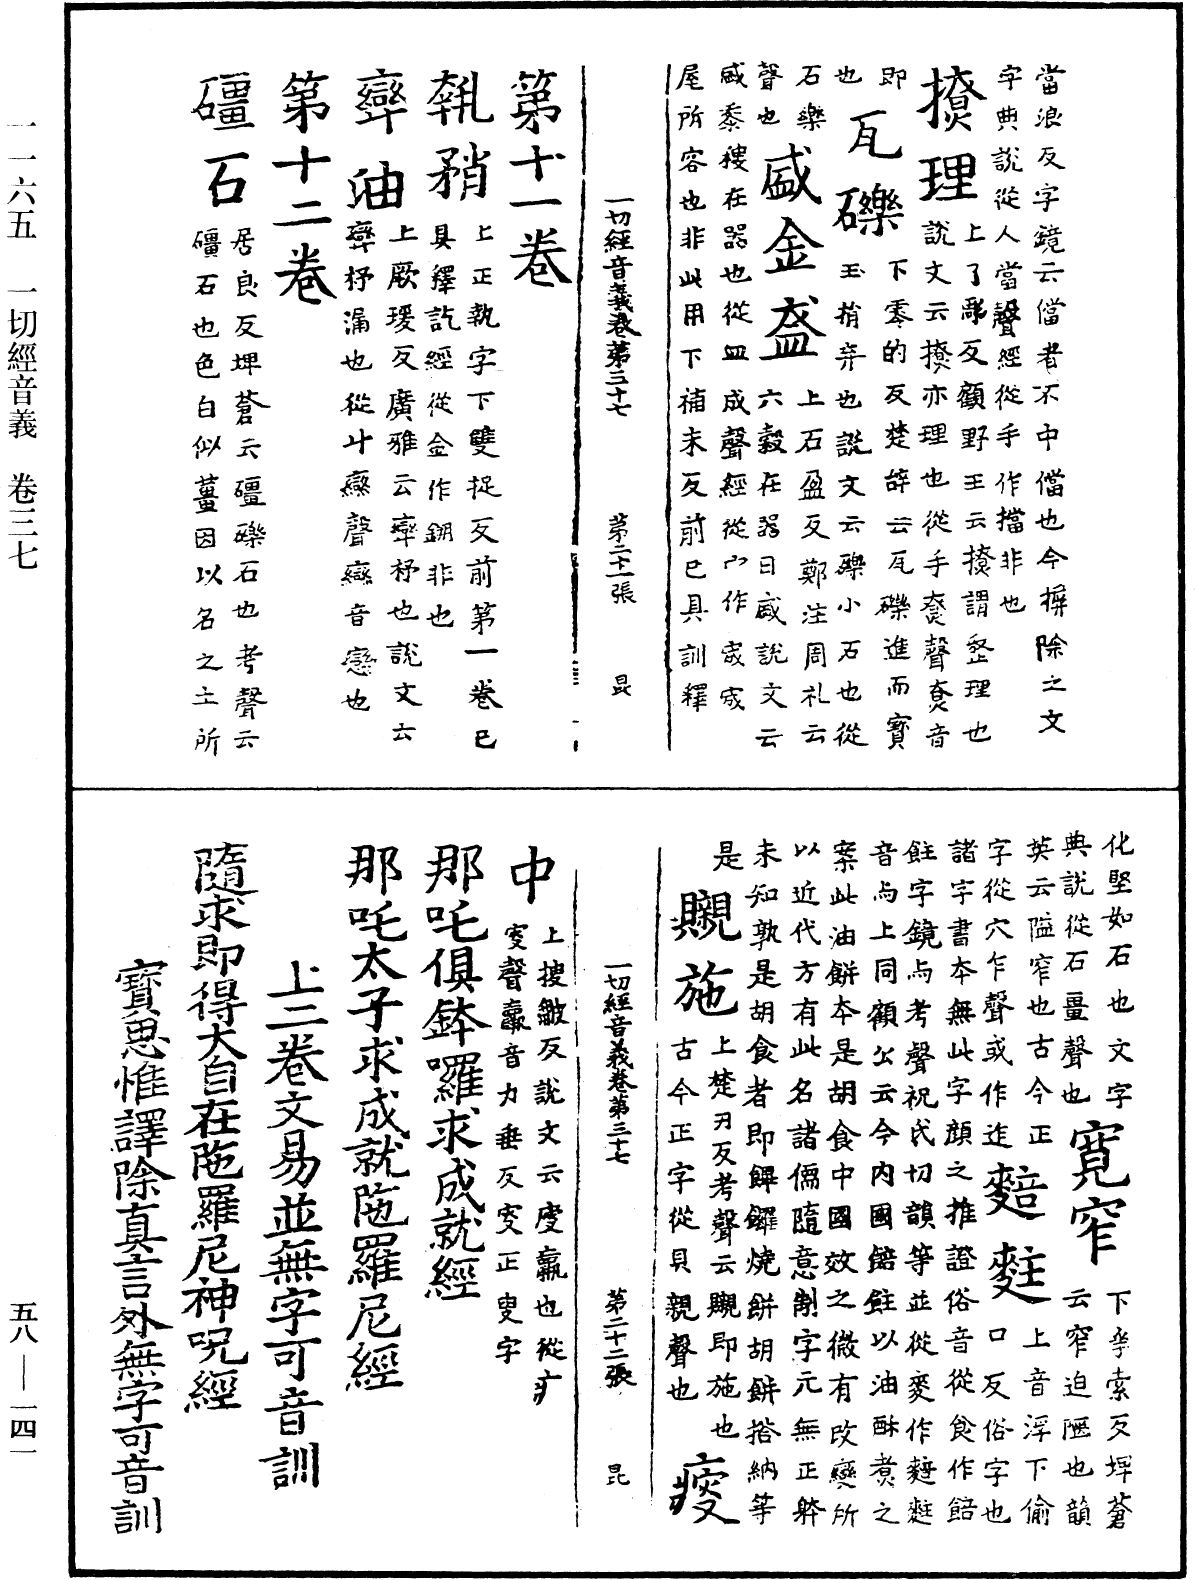 一一六五　一切經音義　卷三七
當浪反字鏡云儅者不中儅也今摒除之文
字典說從人當聲經從手作擋非也
撩理 上了彫反顧野王云撩謂整理也
說文云撩亦理也從手尞聲尞音
即
瓦礫 下零的反楚辭云瓦礫進而寶
玉捎弃也說文云礫小石也從
也
石樂
聲也
盛金盔 上石盈反鄭注周礼云
六穀在器曰盛說文云
盛黍稷在器也從皿成聲經從宀作宬宬
屋所容也非此用下補末反前已具訓釋
一切經音義卷第三十七　第二十一張　昆
第十一卷
執矟 上正執字下雙捉反前第一卷已
具釋訖經從金作鎙非也
㪻油 上厥瑗反廣雅云㪻杼也說文云
㪻杼漏也從斗䜌聲䜌音戀也
第十二卷
礓石 居良反埤蒼云礓礫石也考聲云
礓石也色白似薑因以名之土所
化堅如石也文字
典說從石畺聲也
寬窄 下爭索反埤蒼
云窄迫陋也韻
英云隘窄也古今正
字從穴乍聲或作迮
䴺䴴 上音浮下偷
口反俗字也
諸字書本無此字顏之推證俗音從食作餢
飳字鏡与考聲祝氏切韻等並從麥作䴺䴴
音与上同顧公云今內國餢飳以油酥煮之
案此油餅本是胡食中國效之微有改變所
以近代方有此名諸儒隨意制字元無正體
未知孰是胡食者即饆饠燒餅胡餅搭納等
是
䞋施 上楚刃反考聲云䞋即施也
古今正字從貝親聲也
瘦
一切經音義卷第三十七　第二十二張　昆
中 上搜皺反說文云瘦羸也從疒
叜聲羸音力垂反叜正叟字
那吒俱鉢囉求成就經
那吒太子求成就陁羅尼經
上二卷文易並無字可音訓
隨求即得大自在陁羅尼神呪經
寶思惟譯除真言外無字可音訓
五八—一四一